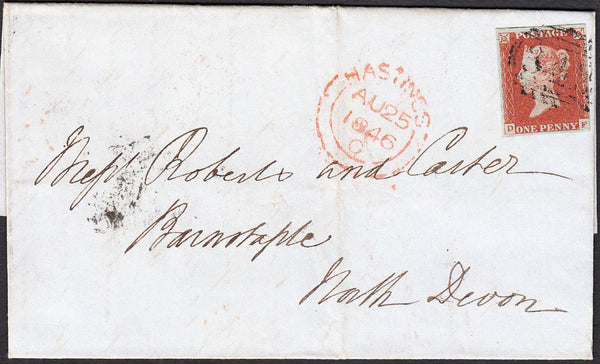 POSTAGE
D F
ONE PENNY
HASTINGS
AU 25
1846
C
Messrs Roberts and Carter
Barnstaple
North Devon